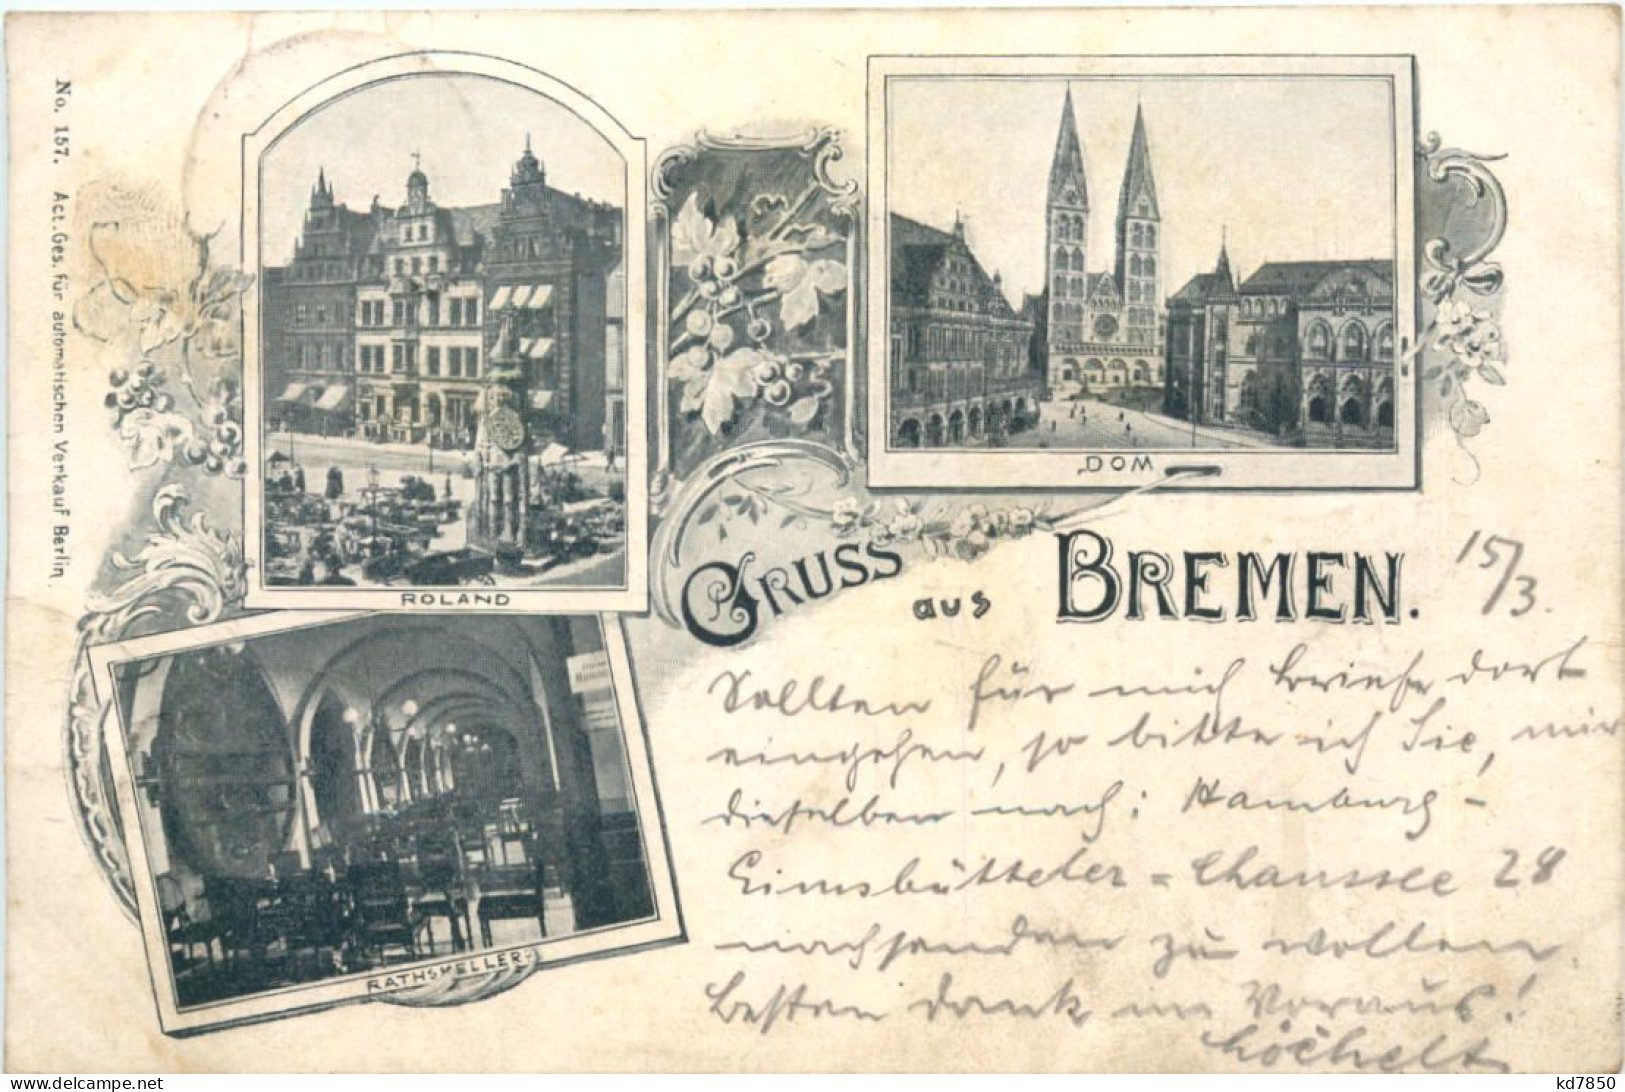 No. 157. Act. Ges. für automatischen Verkauf Berlin.
ROLAND
DOM
RATHSKELLER
GRUSS aus BREMEN.
15/3.
Sollten für mich Briefe dort
eingehen, so bitte ich Sie, mir
dieselben nach: Hamburg-
Eimsbütteler-Chaussee 28
nachsenden zu wollen.
Besten Dank im Voraus!
kd7850